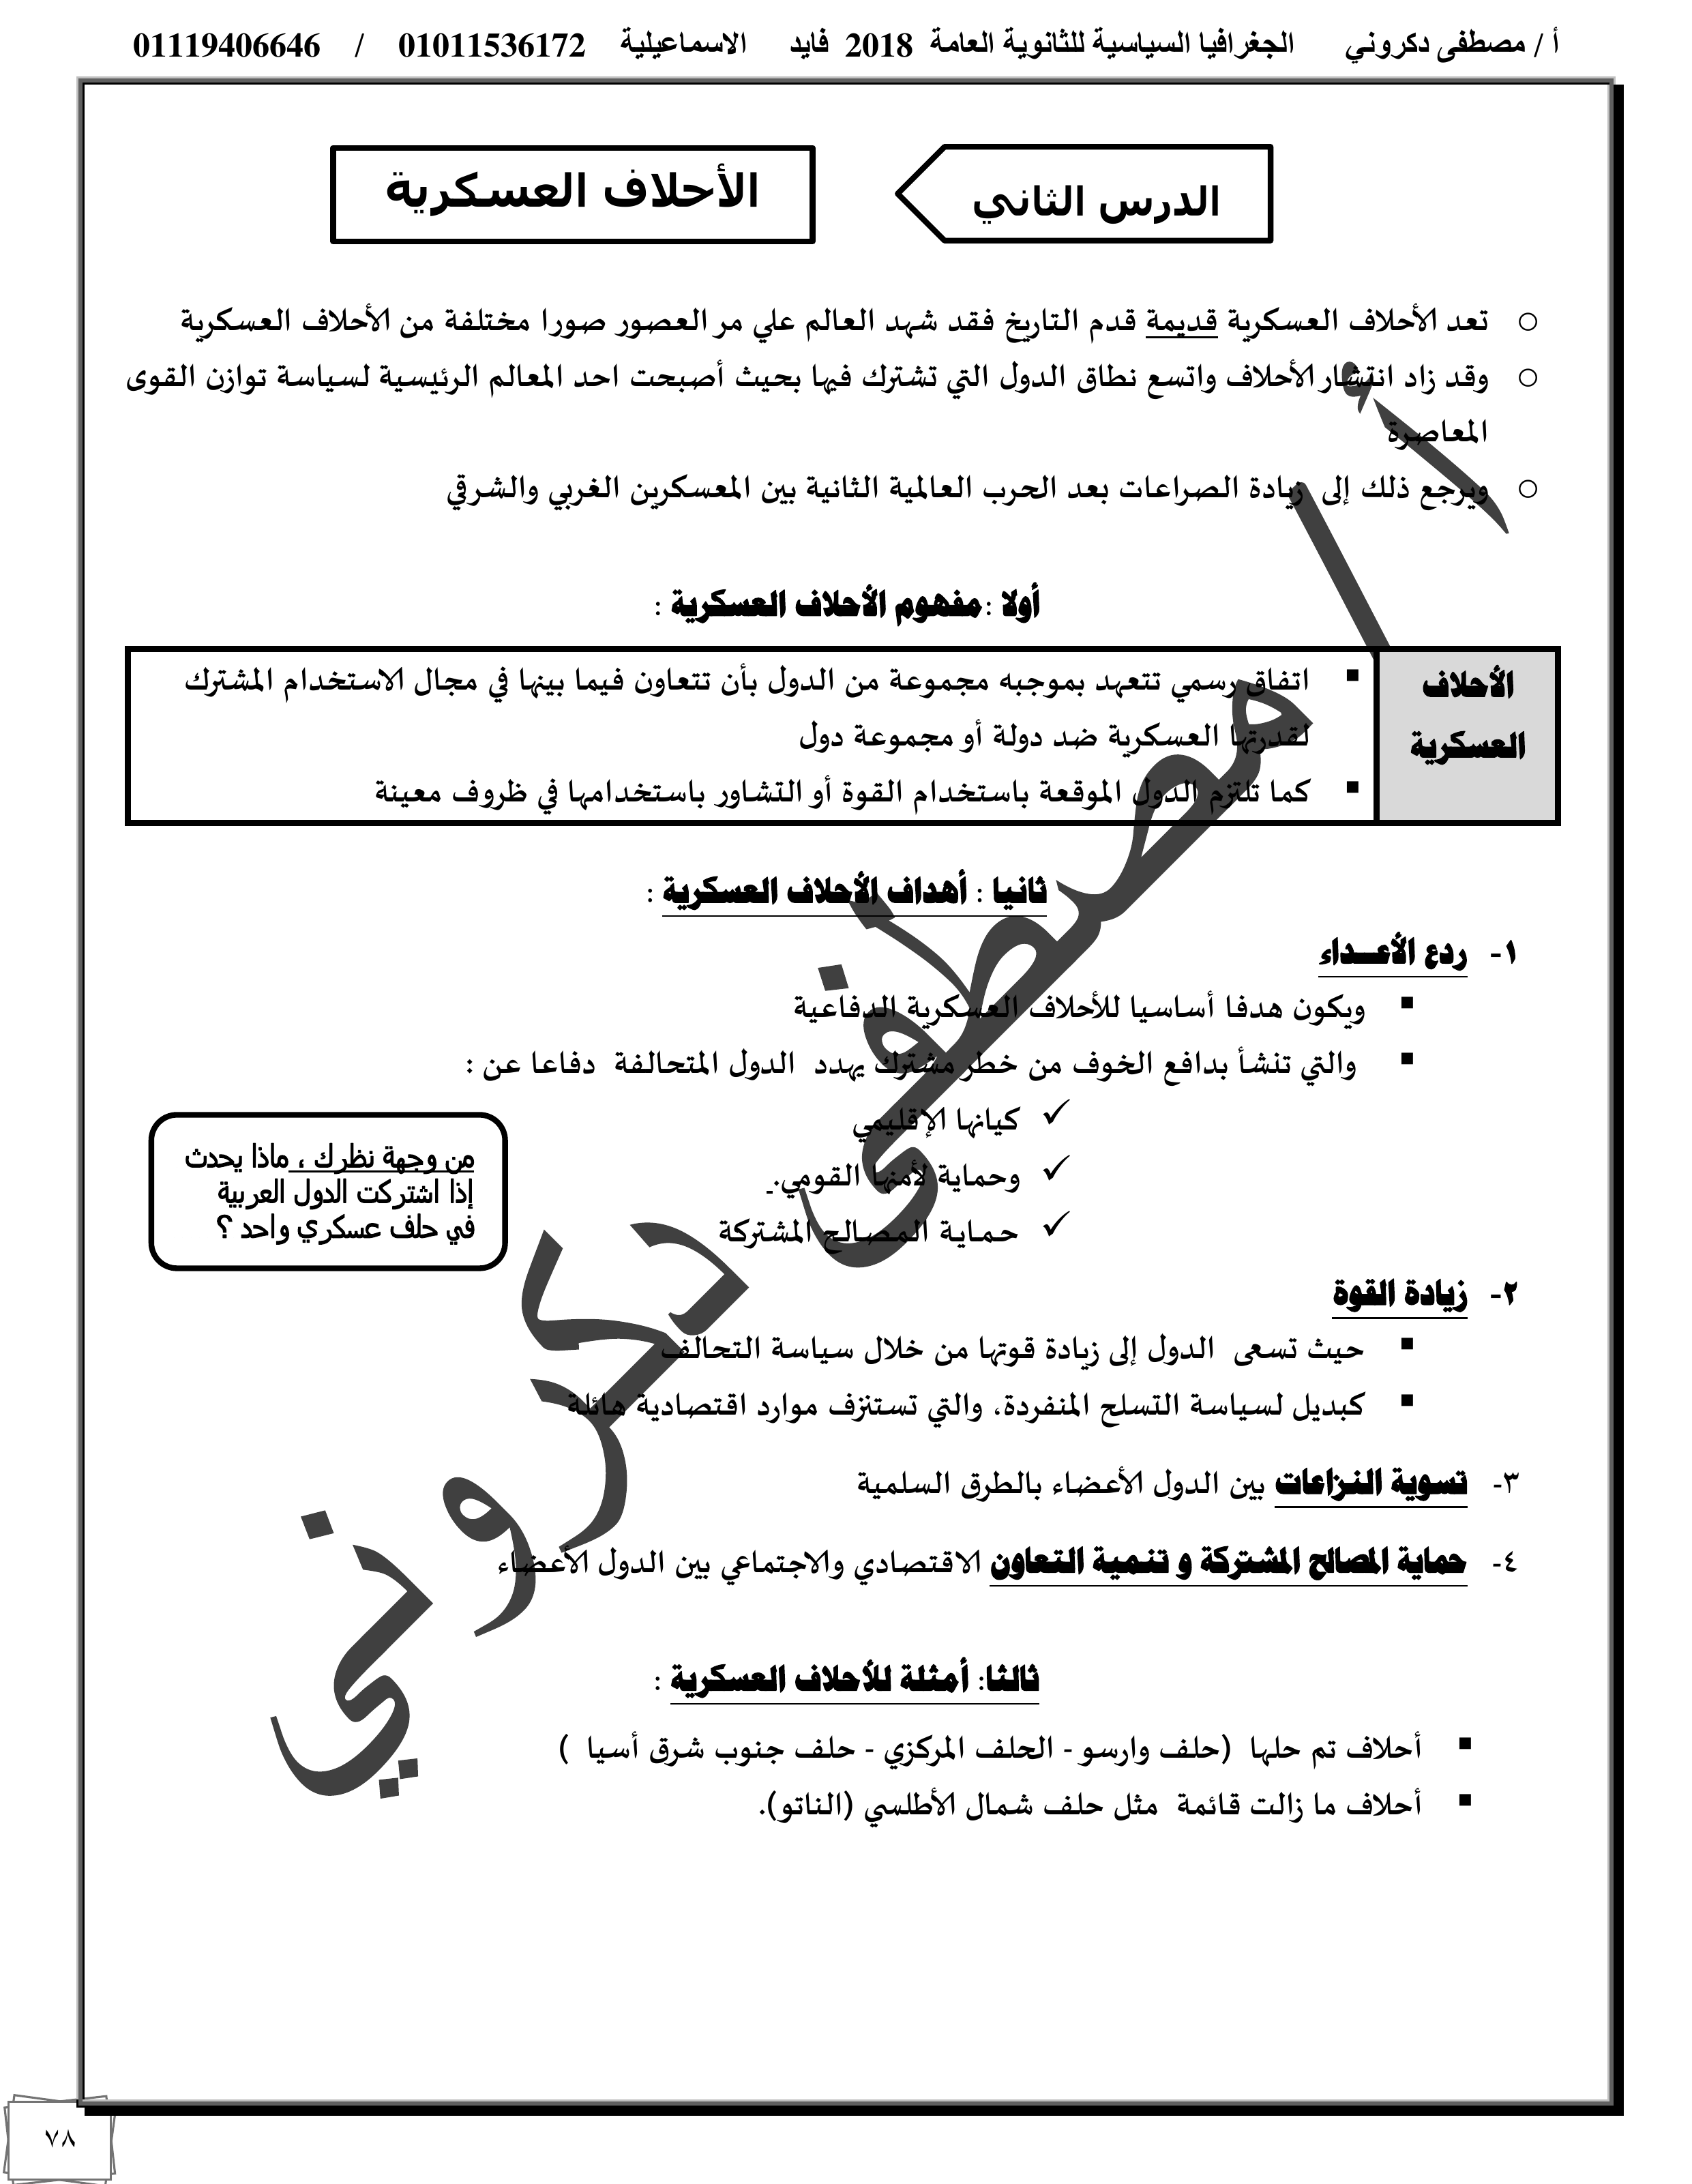 أ / مصطفى دكروني الجغرافيا السياسية للثانوية العامة 2018 فايد الاسماعيلية 01011536172 / 01119406646
الدرس الثاني
الأحلاف العسكرية
تعد الأحلاف العسكرية قديمة قدم التاريخ فقد شهد العالم علي مر العصور صورا مختلفة من الأحلاف العسكرية
وقد زاد انتشار الأحلاف واتسع نطاق الدول التي تشترك فيها بحيث أصبحت احد المعالم الرئيسية لسياسة توازن القوى
المعاصرة
ويرجع ذلك إلى زيادة الصراعات بعد الحرب العالمية الثانية بين المعسكرين الغربي والشرقي
أولا : مفهوم الأحلاف العسكرية :
الأحلاف
العسكرية
اتفاق رسمي تتعهد بموجبه مجموعة من الدول بأن تتعاون فيما بينها في مجال الاستخدام المشترك
لقدرتها العسكرية ضد دولة أو مجموعة دول
كما تلتزم الدول الموقعة باستخدام القوة أو التشاور باستخدامها في ظروف معينة
ثانيا : أهداف الأحلاف العسكرية :
١- ردع الأعـــداء
ويكون هدفا أساسيا للأحلاف العسكرية الدفاعية
والتي تنشأ بدافع الخوف من خطر مشترك يهدد الدول المتحالفة دفاعا عن :
كيانها الإقليمي
وحماية لأمنها القومي.
حماية المصالح المشتركة
من وجهة نظرك ، ماذا يحدث
إذا اشتركت الدول العربية
في حلف عسكري واحد ؟
٢- زيادة القوة
حيث تسعى الدول إلى زيادة قوتها من خلال سياسة التحالف
كبديل لسياسة التسلح المنفردة، والتي تستنزف موارد اقتصادية هائلة
٣- تسوية النزاعات بين الدول الأعضاء بالطرق السلمية
٤- حماية المصالح المشتركة و تنمية التعاون الاقتصادي والاجتماعي بين الدول الأعضاء
ثالثا: أمثلة للأحلاف العسكرية :
أحلاف تم حلها (حلف وارسو - الحلف المركزي - حلف جنوب شرق أسيا )
أحلاف ما زالت قائمة مثل حلف شمال الأطلسي (الناتو).
أ / مصطفى دكروني
٧٨